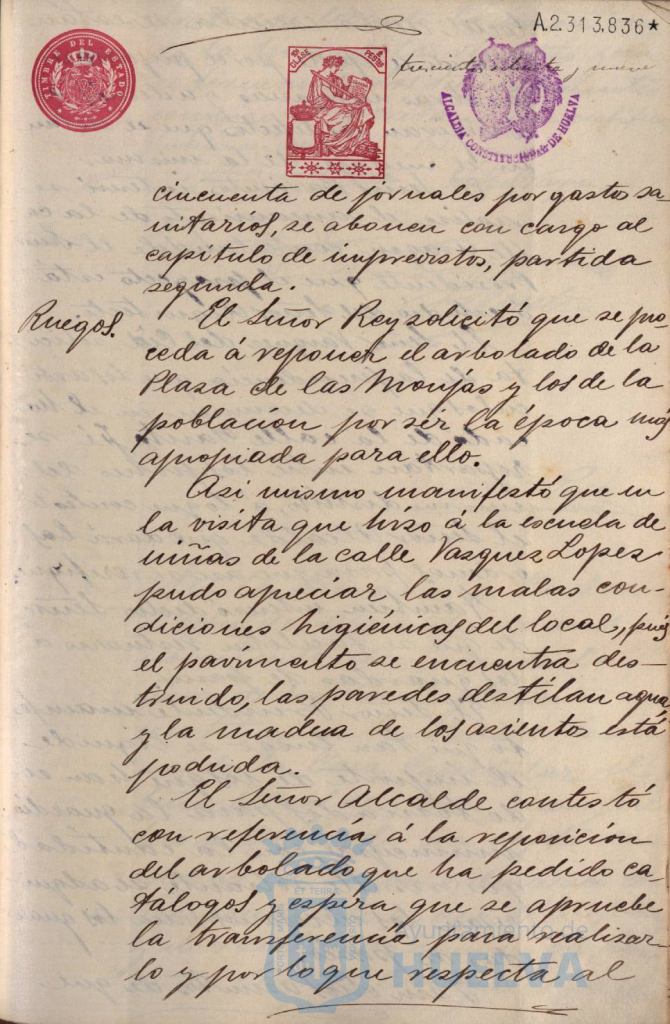 A.2.313.836★
TIMBRE DEL ESTADO
CLASE
PESETAS
trescientos setenta y nueve
ALCALDIA CONSTITUCIONAL DE HUELVA
cincuenta de jornales por gastos sa-
nitarios, se abonen con cargo al
capítulo de imprevistos, partida
segunda.
Ruegos.
El Señor Rey solicitó que se pro-
ceda á reponer el arbolado de la
Plaza de las Monjas y los de la
población por ser la época mas
apropiada para ello.
Asi mismo manifestó que en
la visita que hizo á la escuela de
niñas de la calle Vazquez Lopez
pudo apreciar las malas con-
diciones higiénicas del local, pues
el pavimento se encuentra des-
truido, las paredes destilan agua,
y la madera de los asientos está
podrida.
El Señor Alcalde contestó
con referencia á la reposición
del arbolado que ha pedido ca-
tálogos y espera que se apruebe
la transferencia para realizar-
lo y por lo que respecta al
Ayuntamiento de
HUELVA